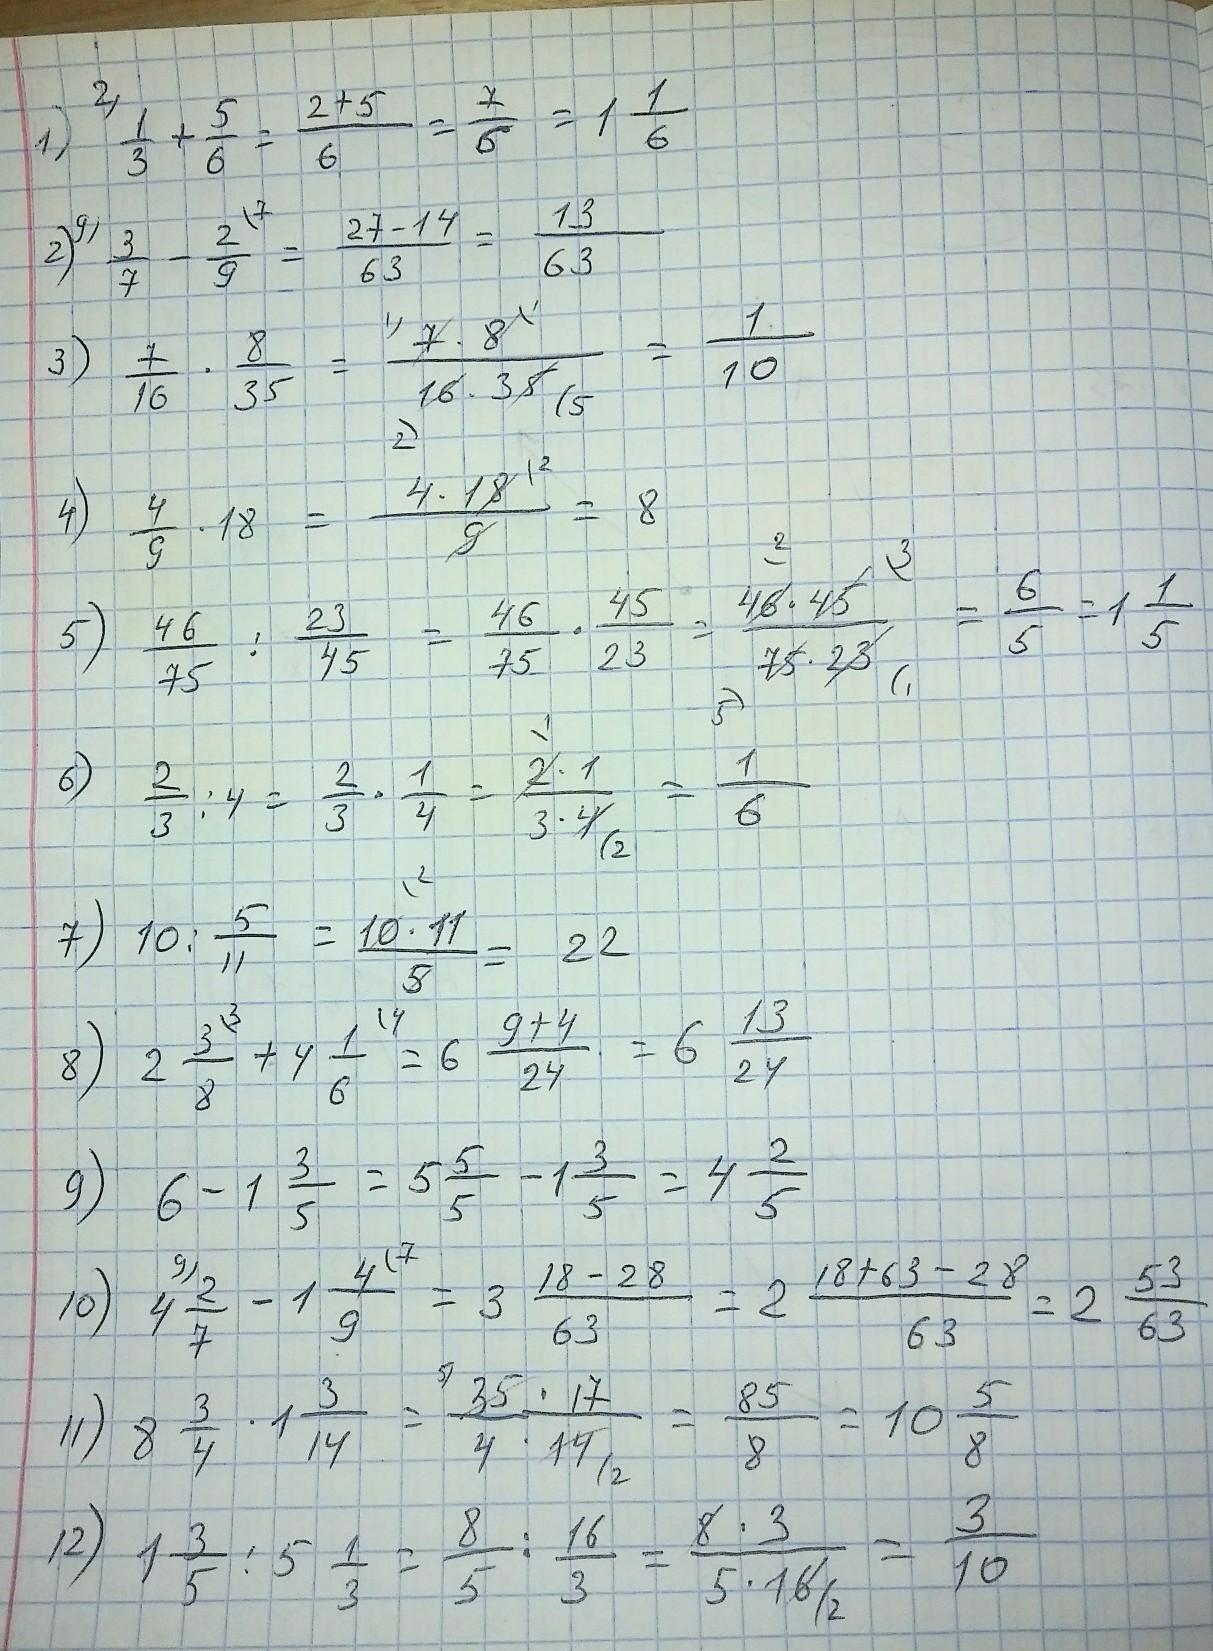 1) 2) 1/3 + 5/6 = (2+5)/6 = 7/6 = 1 1/6
2) 9) 3/7 − 2/9 (7 = (27−14)/63 = 13/63
3) 7/16 · 8/35 = 1) (7 · 8)/(16 · 35) (1 2) (5 = 1/10
4) 4/9 · 18 = (4 · 18)/9 (2 = 8
5) 46/75 : 23/45 = 46/75 · 45/23 = 2 (46 · 45)/(75 · 23) (3 5) (1 = 6/5 = 1 1/5
6) 2/3 : 4 = 2/3 · 1/4 = (1 (2 · 1)/(3 · 4) (2 = 1/6
7) 10 : 5/11 = (10 · 11)/5 (2 = 22
8) 2 3/8 (3 + 4 1/6 (4 = 6 (9+4)/24 = 6 13/24
9) 6 − 1 3/5 = 5 5/5 − 1 3/5 = 4 2/5
10) 4 9) 2/7 − 1 4/9 (7 = 3 (18−28)/63 = 2 (18+63−28)/63 = 2 53/63
11) 8 3/4 · 1 3/14 = 5) (35 · 17)/(4 · 14) (2 = 85/8 = 10 5/8
12) 1 3/5 : 5 1/3 = 8/5 : 16/3 = (8 · 3)/(5 · 16) (2 = 3/10